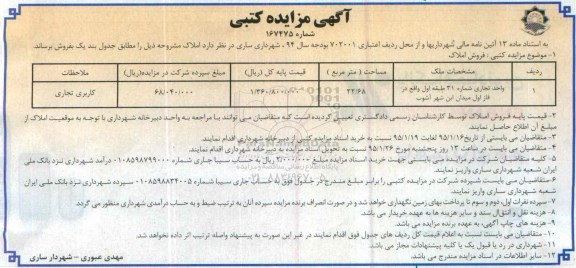 آگهی مزایده کتبی
شماره ۱۶۷۴۷۵
به استناد ماده ۱۳ آئین نامه مالی شهرداریها و از محل ردیف اعتباری ۷۰۲۰۰۱ بودجه سال ۹۴ ، شهرداری ساری در نظر دارد املاک مشروحه ذیل را مطابق جدول بند یک بفروش برساند.
۱- موضوع مزایده کتبی : فروش املاک
ردیف مشخصات ملک مساحت ( متر مربع ) قیمت پایه کل (ریال) مبلغ سپرده شرکت در مزایده(ریال) ملاحظات
۱ واحد تجاری شماره ۳۱ طبقه اول واقع در فاز اول میدان ابن شهر آشوب ۲۲/۶۸ ۱/۳۶۰/۸۰۰/۰۰۰ ۶۸/۰۴۰/۰۰۰ کاربری تجاری
۲- قیمت پایه فروش املاک توسط کارشناسان رسمی دادگستری تعیین گردیده است که متقاضیان می توانند با مراجعه به واحد دبیرخانه شهرداری با توجه به موقعیت املاک از مبلغ آن اطلاع حاصل نمایند.
۳- متقاضیان می بایستی از تاریخ ۹۵/۱/۱۶ لغایت ۹۵/۱/۱۹ نسبت به خرید اسناد مزایده کتبی از دبیرخانه شهرداری اقدام نمایند.
۴- متقاضیان می بایست در ساعت ۱۳ روز پنجشنبه مورخ ۹۵/۱/۲۶ نسبت به تحویل اسناد مزایده به دبیرخانه شهرداری اقدام نمایند.
۵- کلیه متقاضیان شرکت در مزایده می بایستی جهت خرید اسناد مزایده مبلغ ریال به حساب سیبا جاری شماره ۰۱۰۸۵۹۸۷۹۹۰۰۰ درآمد شهرداری نزد بانک ملی ایران شعبه شهرداری ساری واریز نمایند.
۶- متقاضیان می بایست سپرده شرکت در مزایده کتبی را برابر مبلغ مندرج در جدول فوق به حساب جاری سیبا شماره ۰۱۰۸۵۹۸۸۳۴۰۰۵ سپرده شهرداری نزد بانک ملی ایران شعبه شهرداری ساری واریز نمایند.
۷- سپرده نفرات اول، دوم و سوم تا پرداخت بهای زمین نگهداری خواهد شد و در صورت انصراف برنده مزایده سپرده آنان به ترتیب ضبط و به حساب درآمدی شهرداری منظور می گردد.
۸- هزینه نقل و انتقال سند و سایر هزینه ها به عهده خریدار می باشد.
۹- هزینه های چاپ آگهی، به عهده برنده مزایده می باشد.
۱۰- متقاضیان می بایست نسبت به اعلام قیمت کل ردیف های جدول فوق اقدام نمایند در غیر این صورت به پیشنهاد واصله ترتیب اثر داده نخواهد شد.
۱۱- شهرداری در رد یا قبول یک یا کلیه پیشنهادات مجاز می باشد.
۱۲- سایر اطلاعات در اسناد مزایده مندرج می باشد.
مهدی عبوری - شهردار ساری